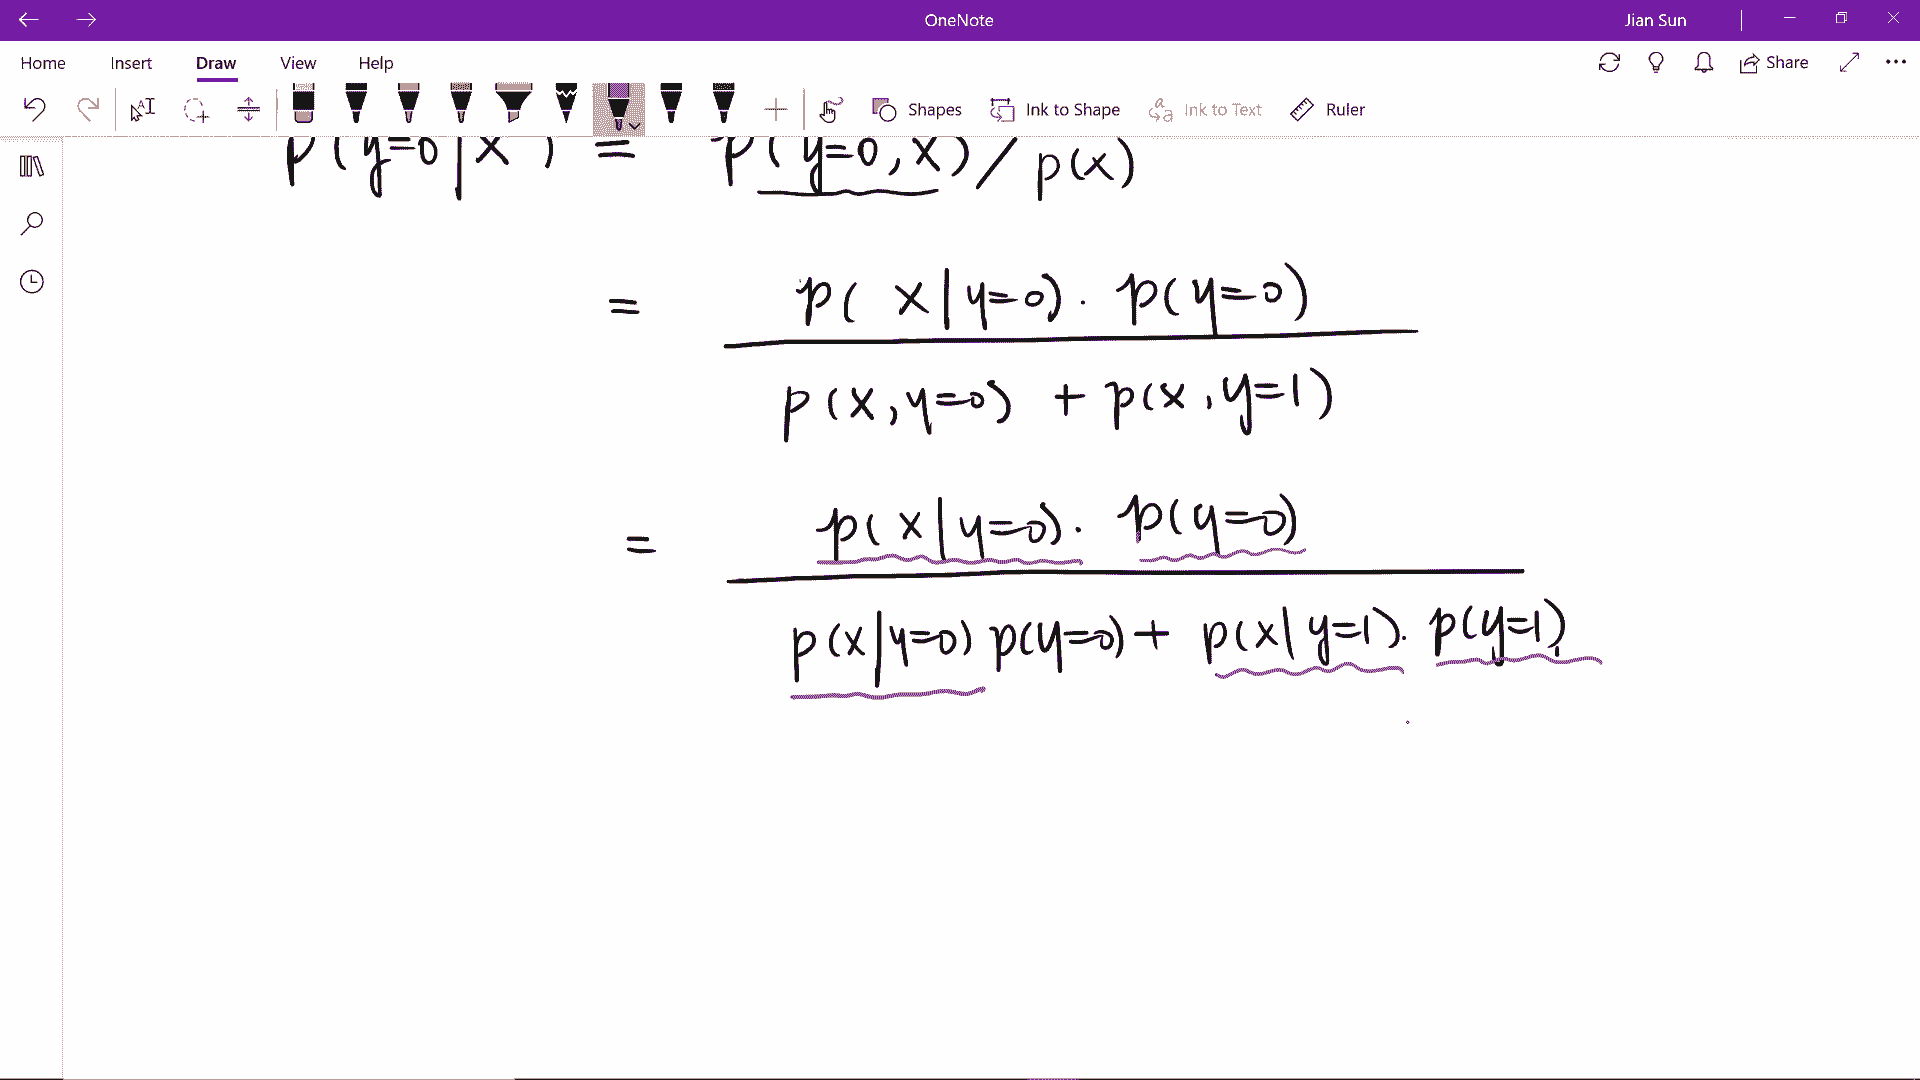 OneNote
Jian Sun
Home Insert Draw View Help
Share
Shapes Ink to Shape Ink to Text Ruler
p(y=0|x) = p(y=0,x)/p(x)
= p(x|y=0)· p(y=0)
p(x,y=0) + p(x,y=1)
= p(x|y=0)· p(y=0)
p(x|y=0) p(y=0) + p(x|y=1)· p(y=1)